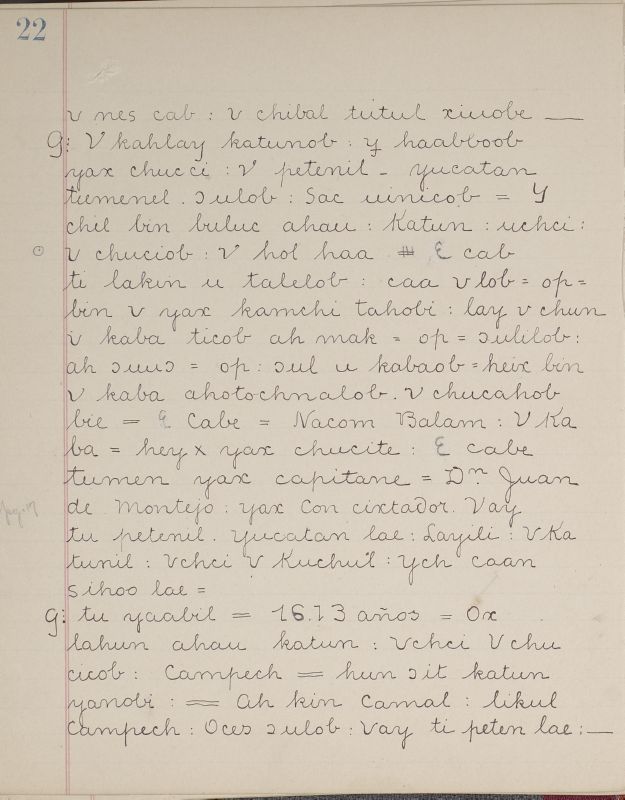 22
v nes cab : v chibal tutul xiuobe —
9: V kahlay katunob : y haabboob
yax chucci : V petenil - yucatan
tumenel . ɔulob : Sac uinicob = Y
chil bin buluc ahau : Katun : uchci :
v chuciob : V hol haa Ɛ cab
ti lakin u talelob : caa v lob = op =
bin v yax kamchi tahobi : lay v chun
v kaba ticob ah mak = op = ɔulilob :
ah ɔuuɔ = op : ɔul u kabaob = heix bin
v kaba ahotochnalob . v chucahob
bie = Ɛ Cabe = Nacom Balam : V Ka
ba = hey x yax chucite : Ɛ cabe
tumen yax capitane = Dn Juan
de Montejo : yax Con cixtador . Vay
tu petenil . yucatan lae : Layili : V Ka
tunil : Vchci V Kuchul : ych caan
sihoo lae =
9: tu yaabil = 1613 años = Ox
lahun ahau katun : Vchci V chu
cicob : Campech = hun ɔit katun
yanobi : = Ah kin Camal : likul
Campech : Oces ɔulob : Vay ti peten lae : —